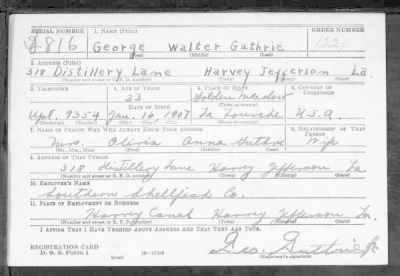 SERIAL NUMBER 1. NAME (Print) ORDER NUMBER
816 George Walter Guthrie
(First) (Middle) (Last)
2. ADDRESS (Print)
318 Distillery Lane Harvey Jefferson La.
(Number and street or R. F. D. number) (Town) (County) (State)
3. TELEPHONE 4. AGE IN YEARS 5. PLACE OF BIRTH 6. COUNTRY OF CITIZENSHIP
33 Golden Meadow
DATE OF BIRTH (Town or county)
9354 Jan. 16, 1907 U.S.A.
(Exchange) (Number) (Mo.) (Day) (Yr.) (State or country)
7. NAME OF PERSON WHO WILL ALWAYS KNOW YOUR ADDRESS 8. RELATIONSHIP OF THAT PERSON
Mrs. Olivia Anna Guthrie Wife
(Mr., Mrs., Miss) (First) (Middle) (Last)
9. ADDRESS OF THAT PERSON
318 Distillery Lane Harvey Jefferson La.
(Number and street or R. F. D. number) (Town) (County) (State)
10. EMPLOYER'S NAME
Southern Shellfish Co.
11. PLACE OF EMPLOYMENT OR BUSINESS
Harvey Canal Harvey Jefferson La.
(Number and street or R. F. D. number) (Town) (County) (State)
I AFFIRM THAT I HAVE VERIFIED ABOVE ANSWERS AND THAT THEY ARE TRUE.
REGISTRATION CARD
D. S. S. Form 1 Geo. Guthrie Jr
(over) (Registrant's signature)